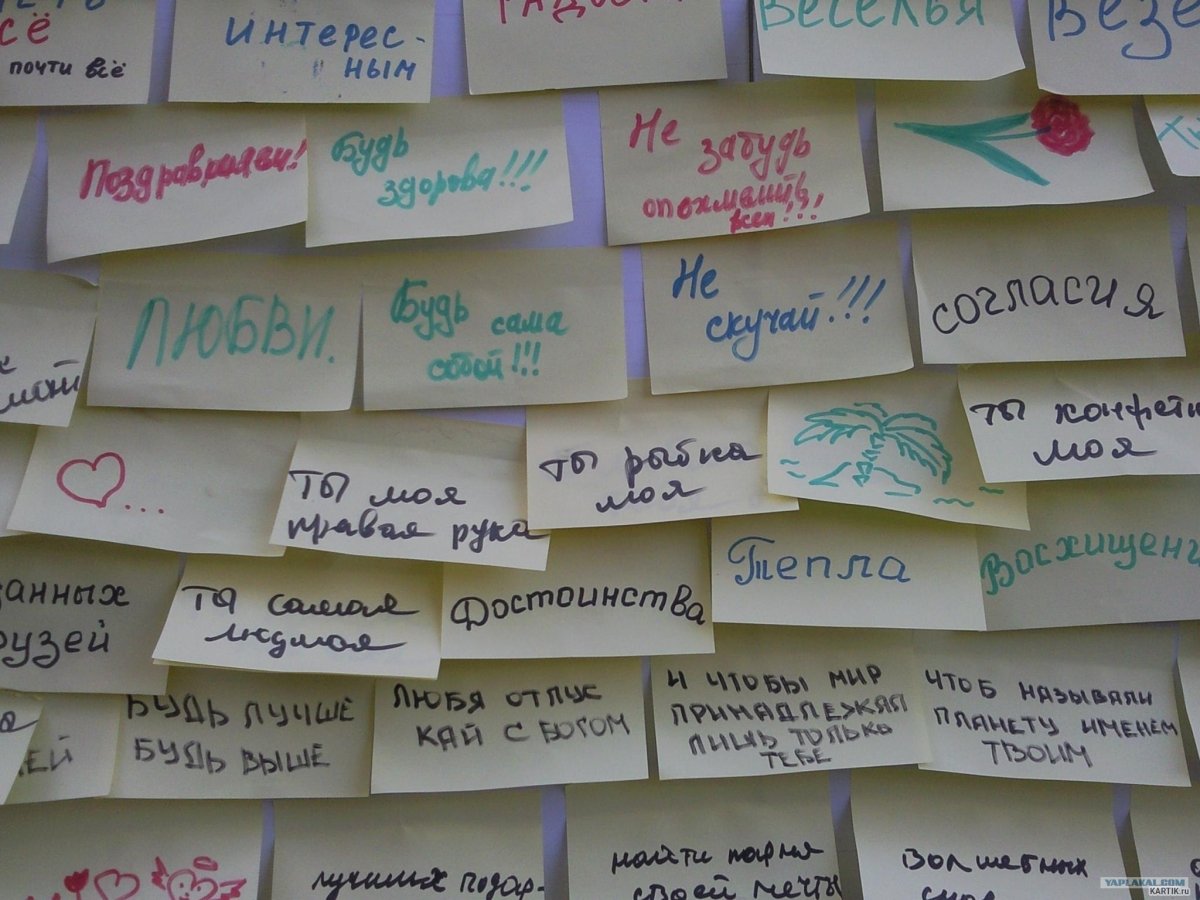 сё
почти всё
интерес-
ным
Веселья
Везе
Поздравляем!
Будь
здорова!!!
Не
забудь
опохмелить
всех!!!
ЛЮБВИ.
Будь сама
собой!!!
Не
скучай!!!
согласия
...
ты моя
правая рука
ты рыбка
моя
ты конфетк
моя
занных
рузей
ты самая
людмоя
Достоинства
Тепла
Восхищени
ЕЙ
БУДЬ ЛУЧШЕ
БУДЬ ВЫШЕ
ЛЮБЯ ОТПУС
КАЙ С БОГОМ
И ЧТОБЫ МИР
ПРИНАДЛЕЖАЛ
ЛИШЬ ТОЛЬКО
ТЕБЕ
ЧТОБ НАЗЫВАЛИ
ПЛАНЕТУ ИМЕНЕМ
ТВОИМ
лучших подар-
найти парня
своей мечты
волшебных
YAPLAKAL.COM
KARTIK.ru